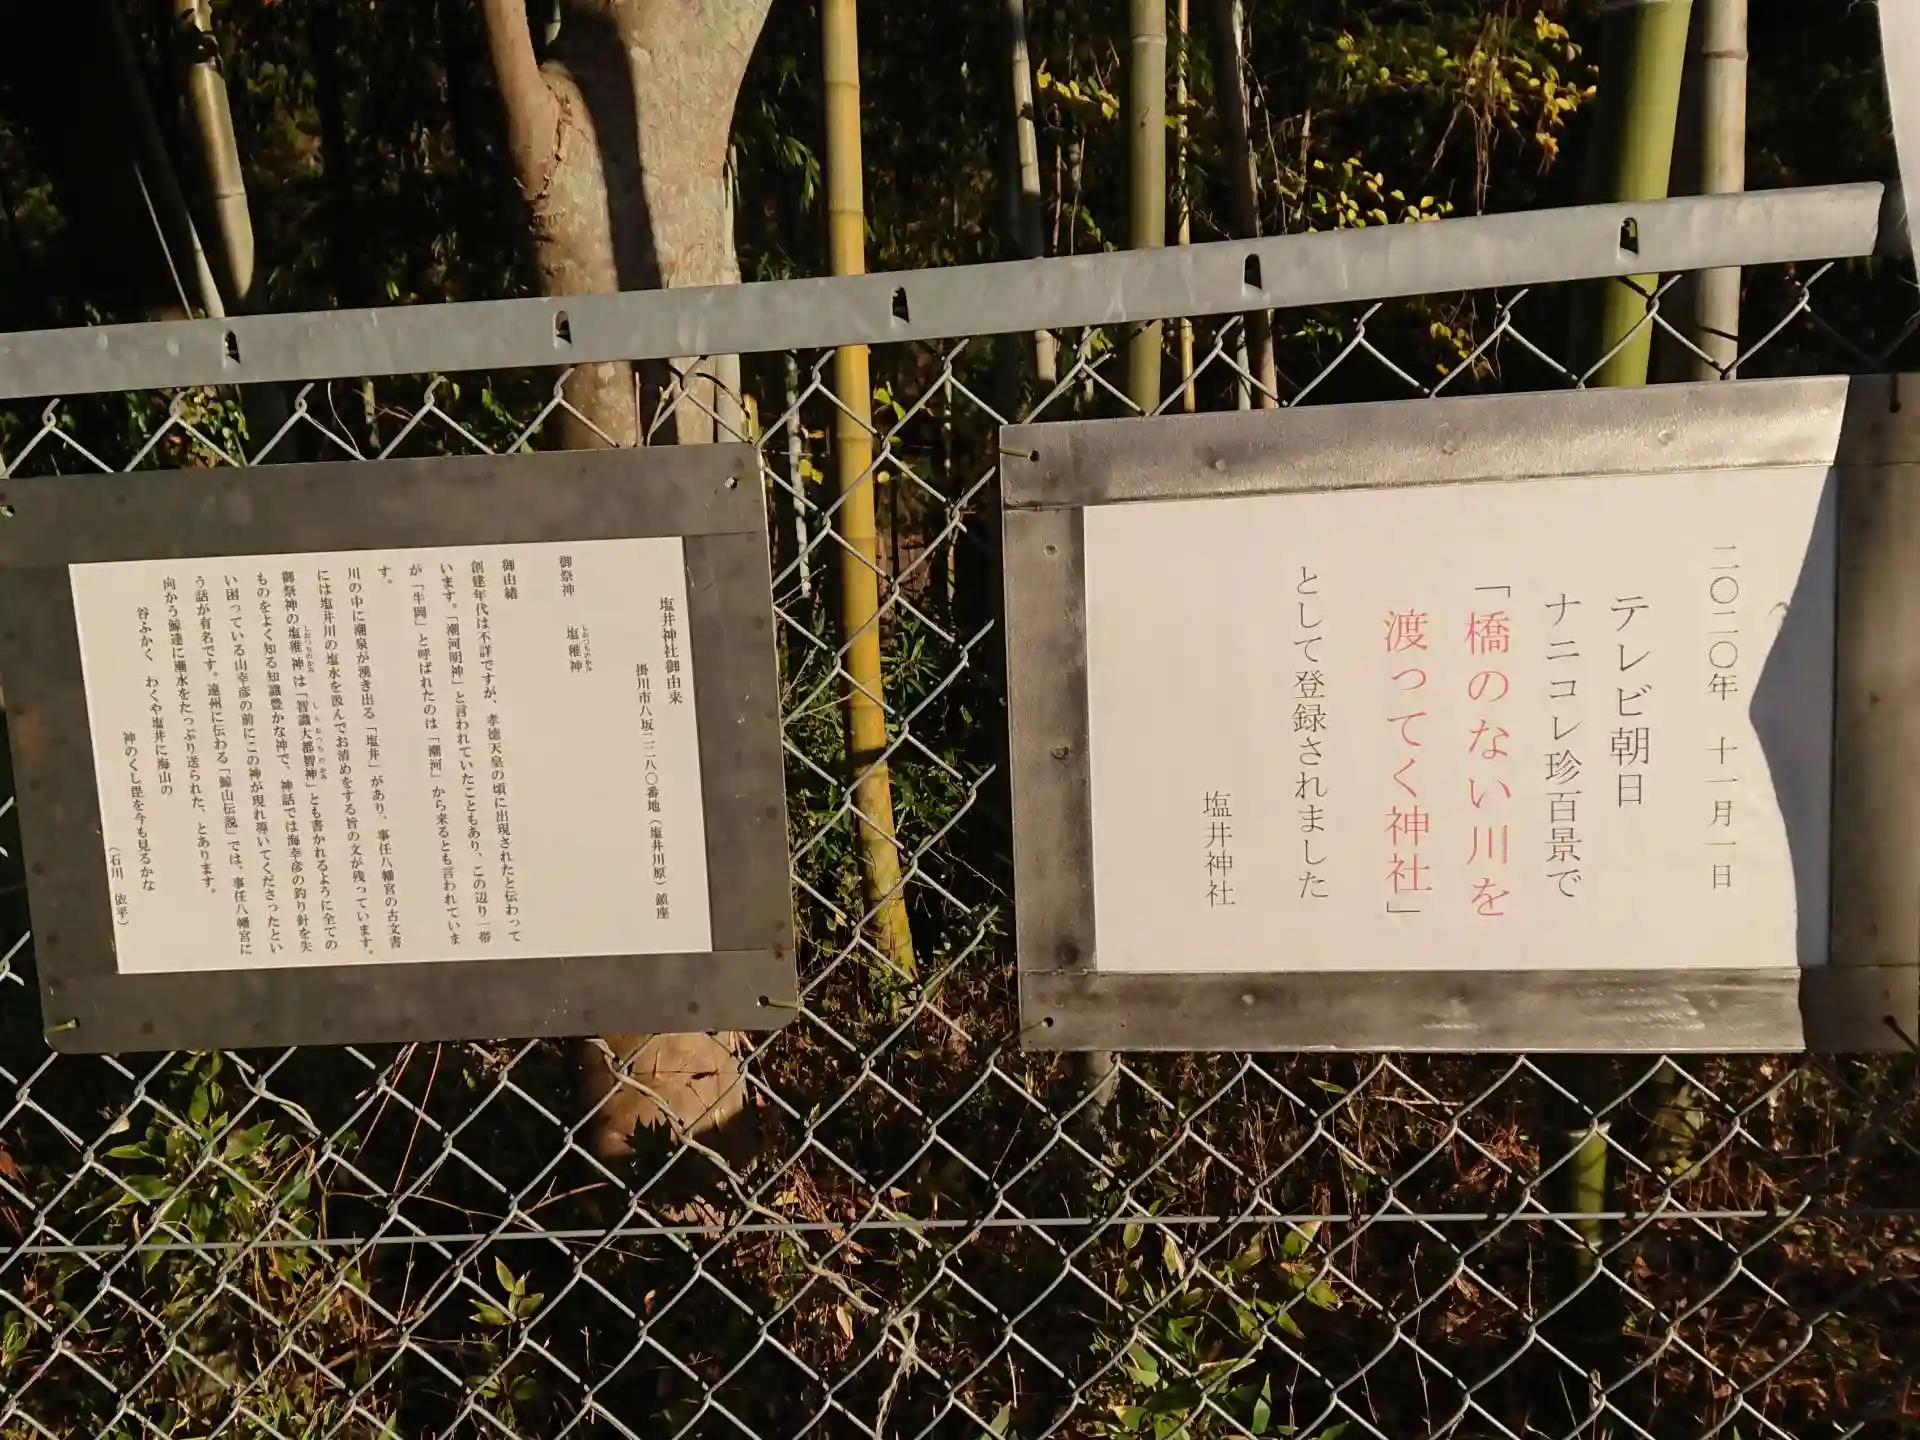 二〇二〇年 十一月一日
テレビ朝日
ナニコレ珍百景で
「橋のない川を
渡ってく神社」
として登録されました
塩井神社
塩井神社御由来
掛川市八坂二二八〇番地(塩井川原)鎮座
御祭神 塩椎神
しおつちのかみ
御由緒
創建年代は不詳ですが、孝徳天皇の頃に出現されたと伝わって
います。「潮河明神」と言われていたこともあり、この辺り一帯
が「牛岡」と呼ばれたのは「潮河」から来るとも言われていま
す。
川の中に潮泉が湧き出る「塩井」があり、事任八幡宮の古文書
には塩井川の塩水を汲んでお清めをする旨の文が残っています。
御祭神の塩椎神は「智識大都智神」とも書かれるように全ての
しおつちのかみ しちおつちのかみ
ものをよく知る知識豊かな神で、神話では海幸彦の釣り針を失
い困っている山幸彦の前にこの神が現れ導いてくださったとい
う話が有名です。遠州に伝わる「鯨山伝説」では、事任八幡宮に
向かう鯨達に潮水をたっぷり送られた、とあります。
谷ふかく わくや塩井に海山の
神のくし毘を今も見るかな
(石川 依平)